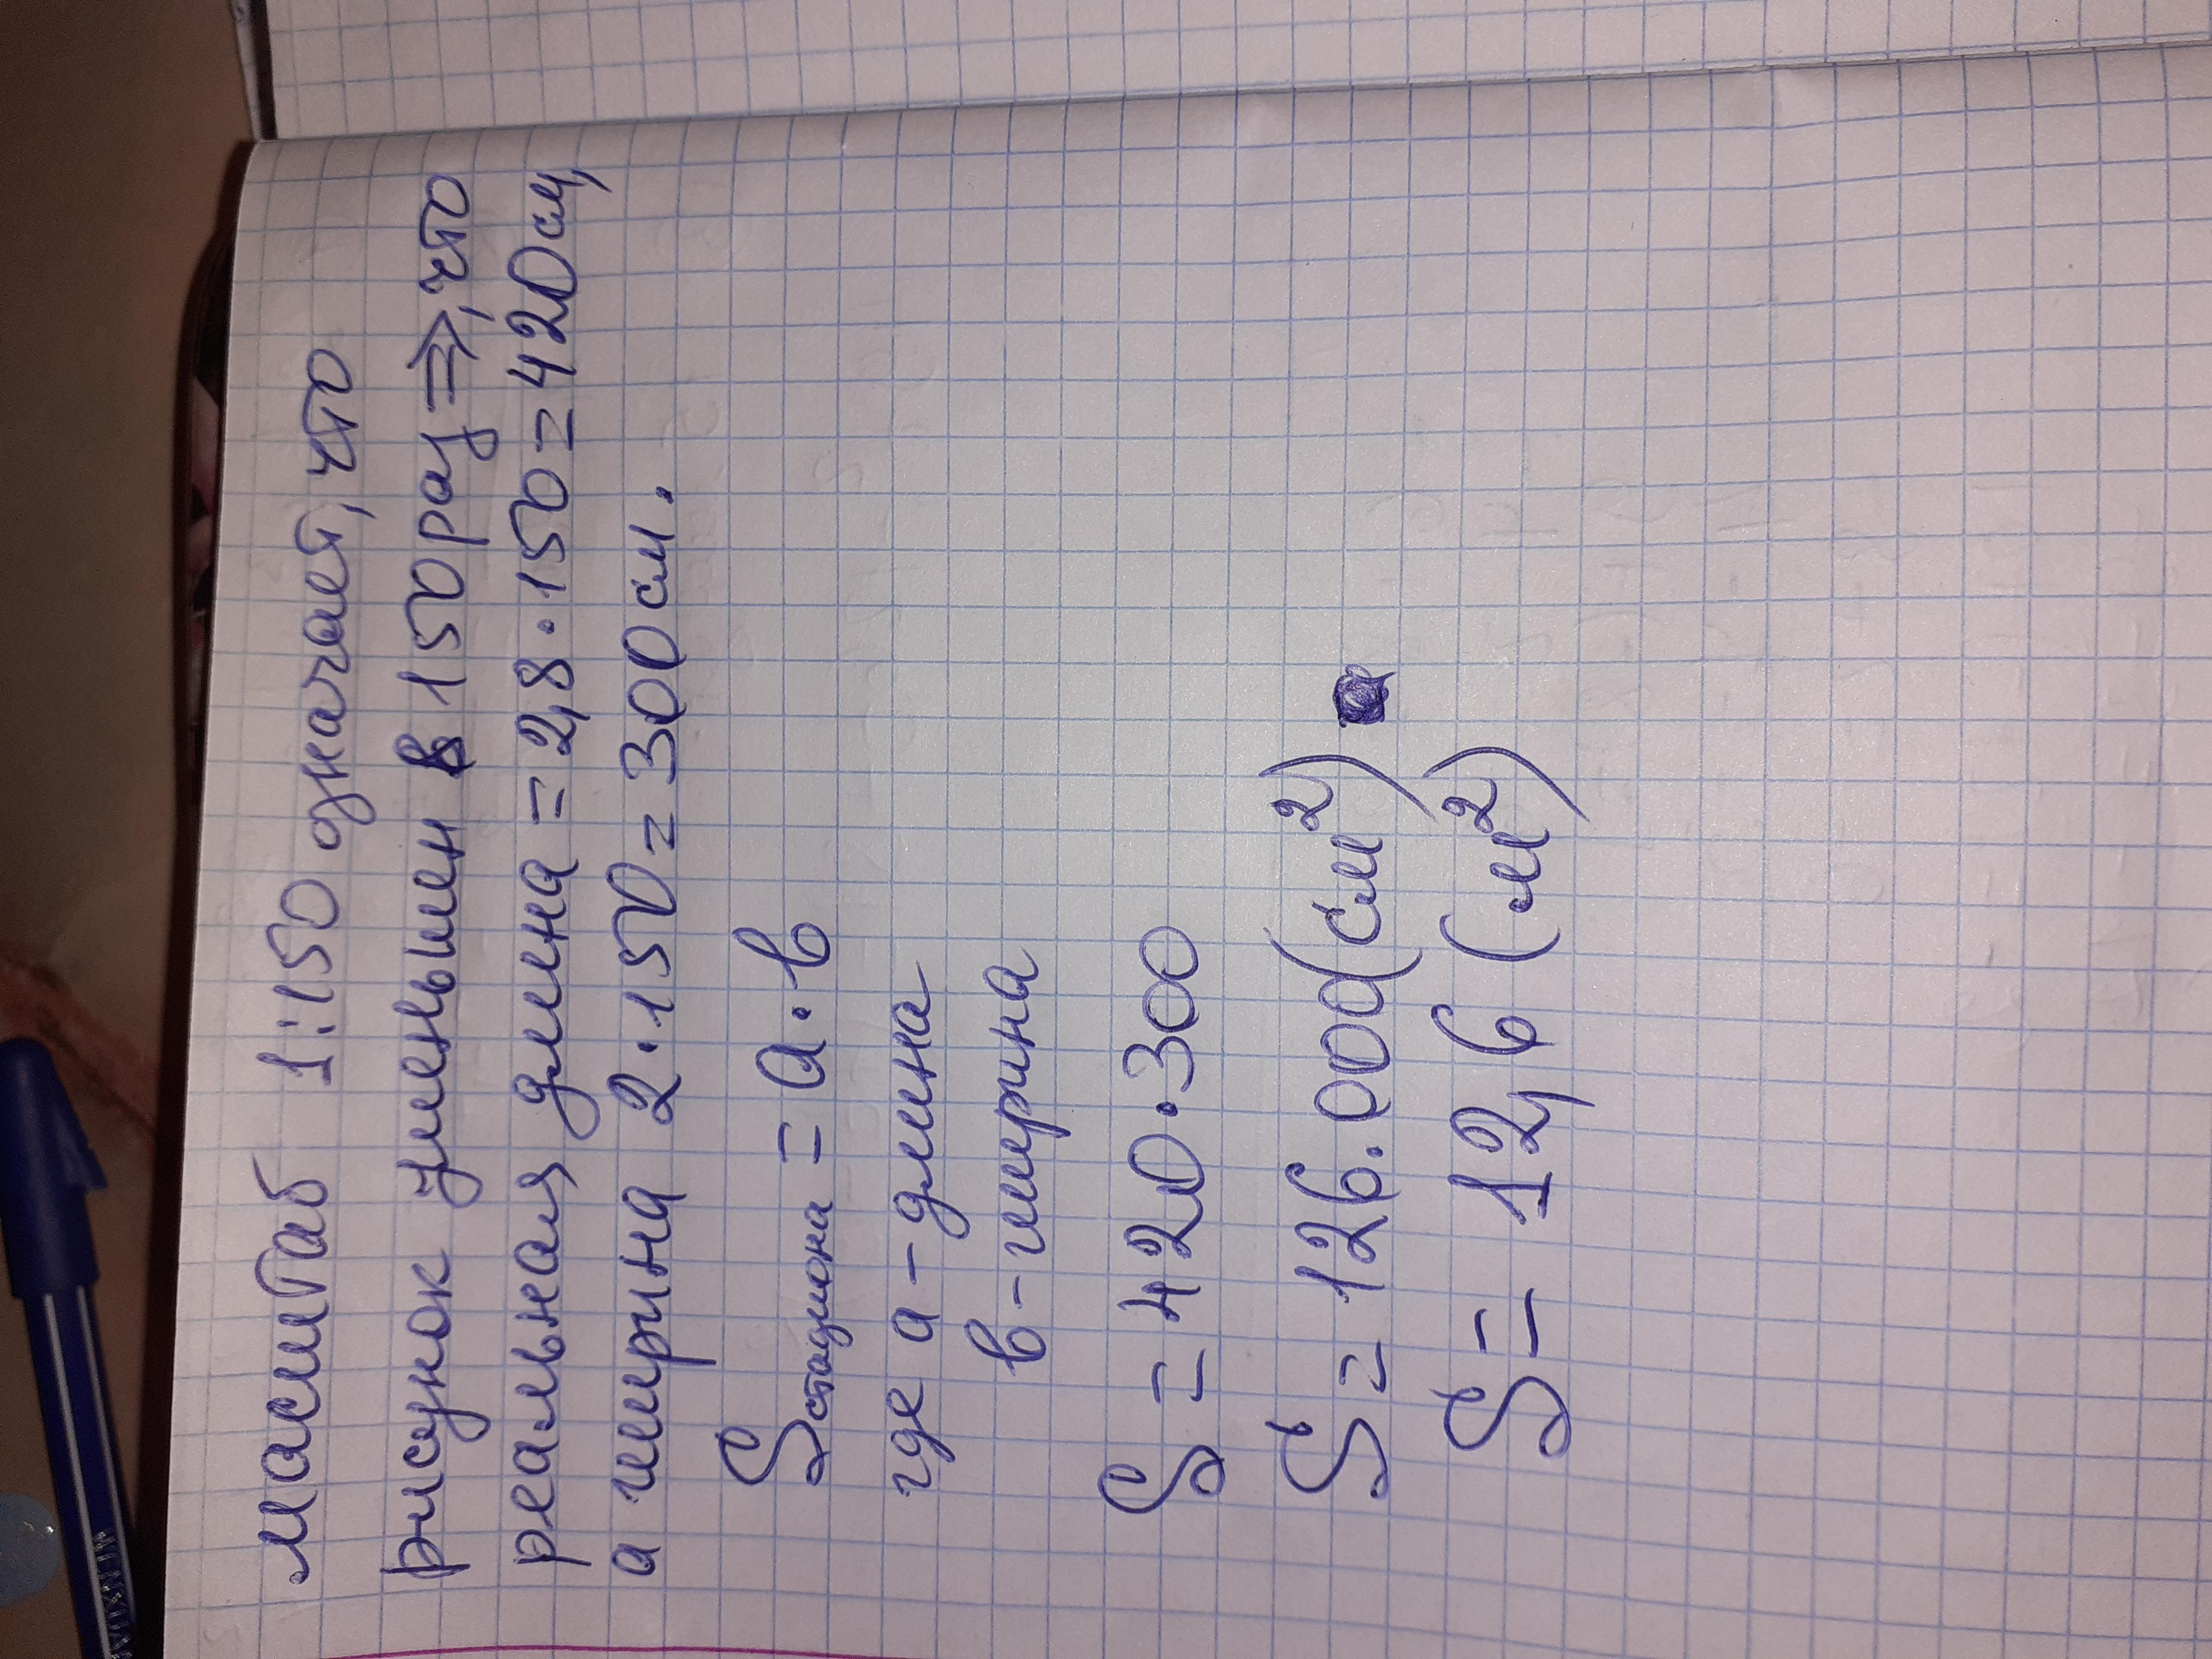 масштаб 1:150 означает, что
рисунок уменьшен в 150 раз =>, что
реальная длина = 2,8 · 150 = 420 см,
а ширина 2 · 150 = 300 см.
Sстадиона = а · в
где а - длина
в - ширина
S = 420 · 300
S = 126.000 (см²)
S = 12,6 (м²)